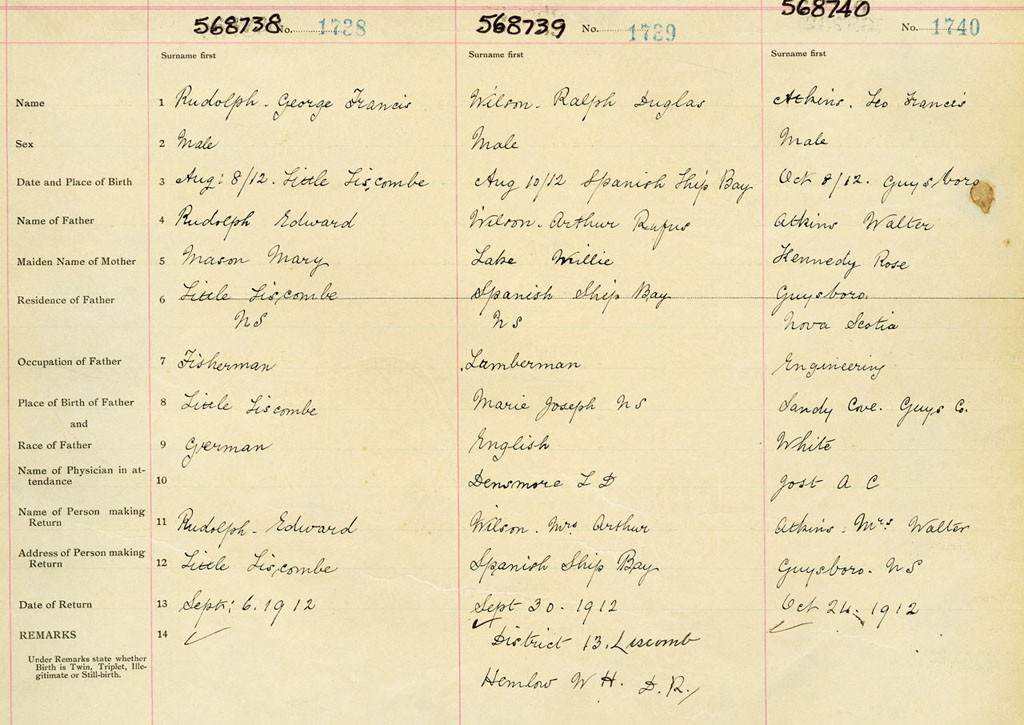 568738 No. 1738
568739 No. 1739
568740 No. 1740
Surname first Surname first Surname first
Name 1 Rudolph - George Francis Wilson - Ralph Duglas Atkins. Leo Francis
Sex 2 Male Male Male
Date and Place of Birth 3 Aug: 8/12. Little Liscombe Aug 10/12 Spanish Ship Bay Oct 8/12. Guysboro
Name of Father 4 Rudolph Edward Wilson - Arthur Rufus Atkins Walter
Maiden Name of Mother 5 Mason Mary Lake Willie Kennedy Rose
Residence of Father 6 Little Liscombe Spanish Ship Bay Guysboro.
NS NS Nova Scotia
Occupation of Father 7 Fisherman Lumberman Engineering
Place of Birth of Father 8 Little Liscombe Marie Joseph NS Sandy Cove. Guys Co.
and
Race of Father 9 German English White
Name of Physician in at-
tendance 10 Densmore L D Jost A C
Name of Person making
Return 11 Rudolph - Edward Wilson. Mrs Arthur Atkins. Mrs Walter
Address of Person making
Return 12 Little Liscombe Spanish Ship Bay Guysboro. NS
Date of Return 13 Sept: 6. 1912 Sept 30. 1912 Oct 24. 1912
REMARKS 14 District 13. Liscomb
Under Remarks state whether
Birth is Twin, Triplet, Ille-
gitimate or Still-birth.
Hemlow W H. D.R.